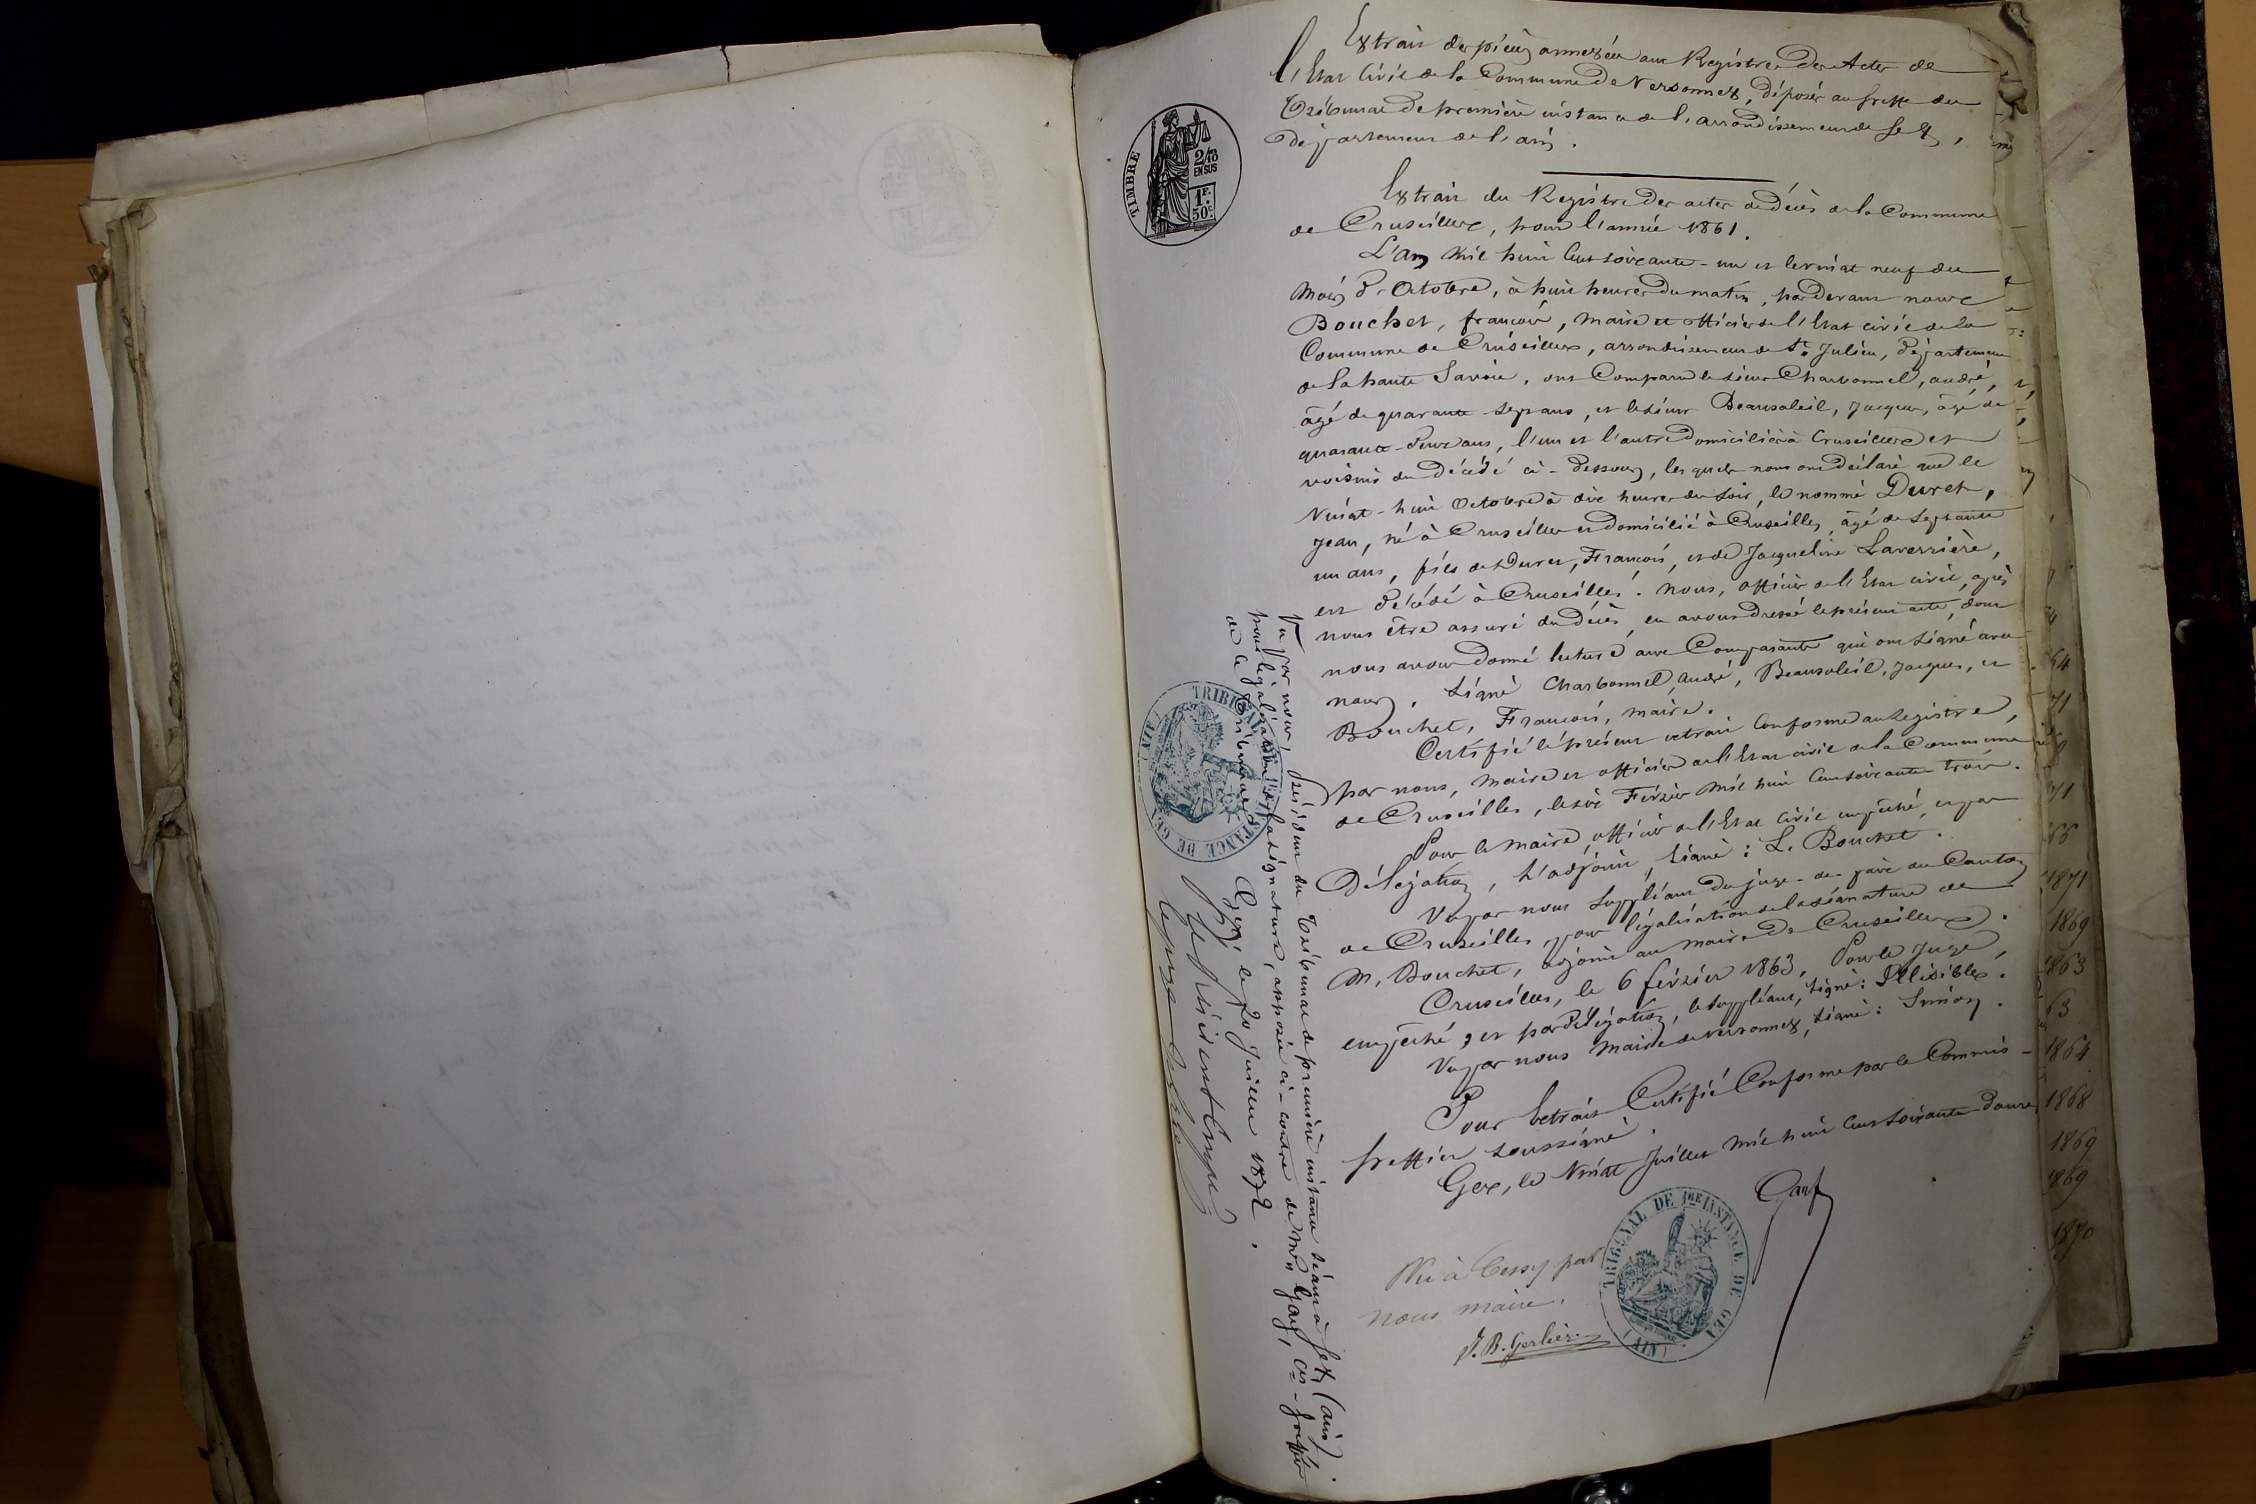 Extrait des pièces annexées aux Registres des Actes de
l'Etat Civil de la Commune de Versonnex, déposés au Greffe du
Tribunal de première instance de l'arrondissement de Gex,
département de l'ain.
Extrait du Registre des actes de décès de la Commune
de Cruseilles, pour l'année 1861.
L'an mil huit cent soixante-un et le vingt neuf du
mois d'Octobre, à huit heures du matin, par devant nous
Bouchet, françois, maire et officier de l'Etat civil de la
Commune de Cruseilles, arrondissement de St Julien, département
de la haute Savoie, ont Comparu le sieur Charbonnel, andré,
âgé de quarante-sept ans, et le sieur Beausoleil, Jacques, âgé de
quarante-deux ans, l'un et l'autre domiciliés à Cruseilles et
voisins du décédé ci-dessous, lesquels nous ont déclaré que le
vingt-huit Octobre à dix heures du soir, le nommé Duret,
Jean, né à Cruseilles et domicilié à Cruseilles, âgé de septante
un ans, fils de Duret, François, et de Jacqueline Laverrière,
est décédé à Cruseilles. Nous, officier de l'Etat civil, après
nous être assuré du décès, en avons dressé le présent acte, dont
nous avons donné lecture aux Comparants qui ont signé avec
nous. Signé Charbonnel, André, Beausoleil, Jacques, et
Bouchet, François, maire.
Certifié le présent extrait Conforme au Registre,
par nous, maire et officier de l'Etat civil de la Commune
de Cruseilles, le six Février mil huit cent soixante-trois.
Pour le maire, officier de l'Etat civil empêché, et par
Délégation, L'adjoint, signé : L. Bouchet.
Vu par nous suppléant du juge-de-paix du Canton
de Cruseilles, pour légalisation de la signature de
M. Bouchet, adjoint au maire de Cruseilles.
Cruseilles, le 6 février 1863, Pour le Juge,
empêché, et par délégation, le suppléant, signé : Illisible.
Vu par nous maire de Versonnex, signé : Simon.
Pour Extrait Certifié Conforme par le Commis-
greffier soussigné.
Gex, le Vingt Juillet mil huit cent soixante-douze
Gay
Vu à Cessy par
nous maire.
J. B. Gerlier
TRIBUNAL DE 1RE INSTANCE DE GEX
(AIN)
TIMBRE
2/10
EN SUS
1F.
50c.
Vu par nous, Président du Tribunal de première instance séant à Gex (ain).
pour légalisation de la signature, apposée ci-contre de Mr. Gay, cis-greffier
de ce Tribunal
Gex, le 20 Juillet 1872.
Pr le Président empêché
le juge
TRIBUNAL DE 1RE INSTANCE DE GEX
(AIN)
64
71
71
66
1871
1869
1863
63
1864
1868
1869
1869
1870